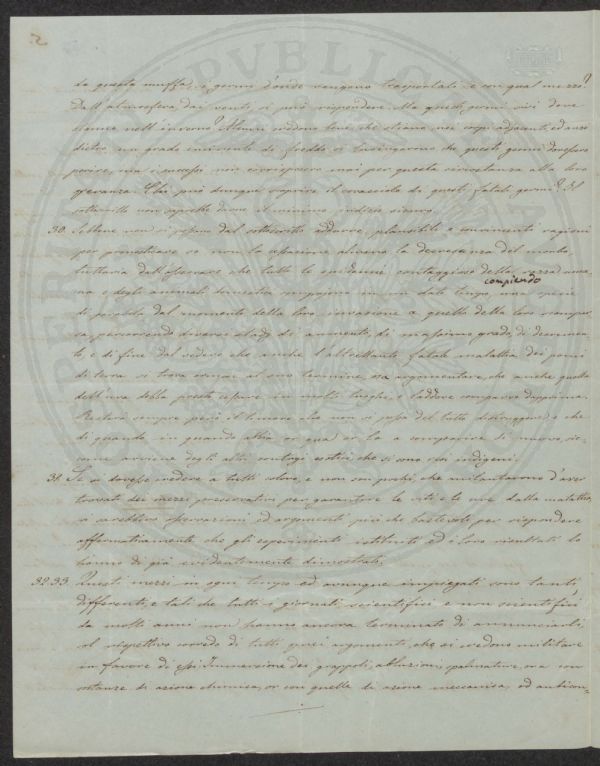 da questa muffa, i germi d'onde vengono trasportati, e con qual mezzo?
Dall'atmosfera dai venti, si può rispondere. Ma questi germi poi dove
stanno nell'inverno? Alcuni credono bene, che stiano nei corpi adjacenti ed anzi
dietro un grado eminente di freddo si lusingarono che questi germi dovessero
perire, ma i successi non corrisposero mai per questa circostanza alla loro
speranza. Chi può dunque scoprire il nascosto di questi fatali germi? Il
sottoscritto non saprebbe darne il minimo indizio sicuro.
30. Sebbene non si possano dal sottoscritto addurre plausibili e convincenti ragioni
per pronosticare se non la cessazione almeno la decrescenza del morbo
tuttavia dall'osservare che tutte le epidemie contagiose della razza uma-
na e degli animali domestici compiendo in un dato tempo, una specie
di parabola dal momento della loro invasione a quello della loro scompar-
sa, percorrendo diversi stadj di aumento, di massimo grado, di decremen-
to, e di fine dal vedere che anche l'altrettanto fatale malattia dei pomi
di terra si trova ormai al suo termine, osa argomentare, che anche quella
dell'uva debba presto cessare in molti luoghi, e laddove comparve dapprima.
Resterà sempre però il timore che non si possa del tutto distruggerla e che
di quando in quando abbia or qua or là a comparire di nuovo, sic-
come avviene degli altri contagi esotici, che si sono resi indigeni.
31. Se si dovesse credere a tutti coloro, e non son pochi, che millantarono d'aver
trovati dei mezzi preservativi per garantire le viti e le uve dalla malattia,
si avrebbero osservazioni ed argomenti più che bastevoli per rispondere
affermativamente che gli esperimenti istituiti ed i loro risultati lo
hanno di già evidentemente dimostrato.
32.33 Questi mezzi in ogni tempo ed ovunque impiegati sono tanti,
differenti, e tali che tutti i giornali scientifici e non scientifici
da molti anni non hanno ancora terminato di annunciarli,
col rispettivo corredo di tutti quei argomenti, che si vedono militare
in favore di essi. Immersione dei grappoli, abluzioni, spalmature, ora con
sostanze di azione chimica, or con quelle di azione meccanica, ed anticon-